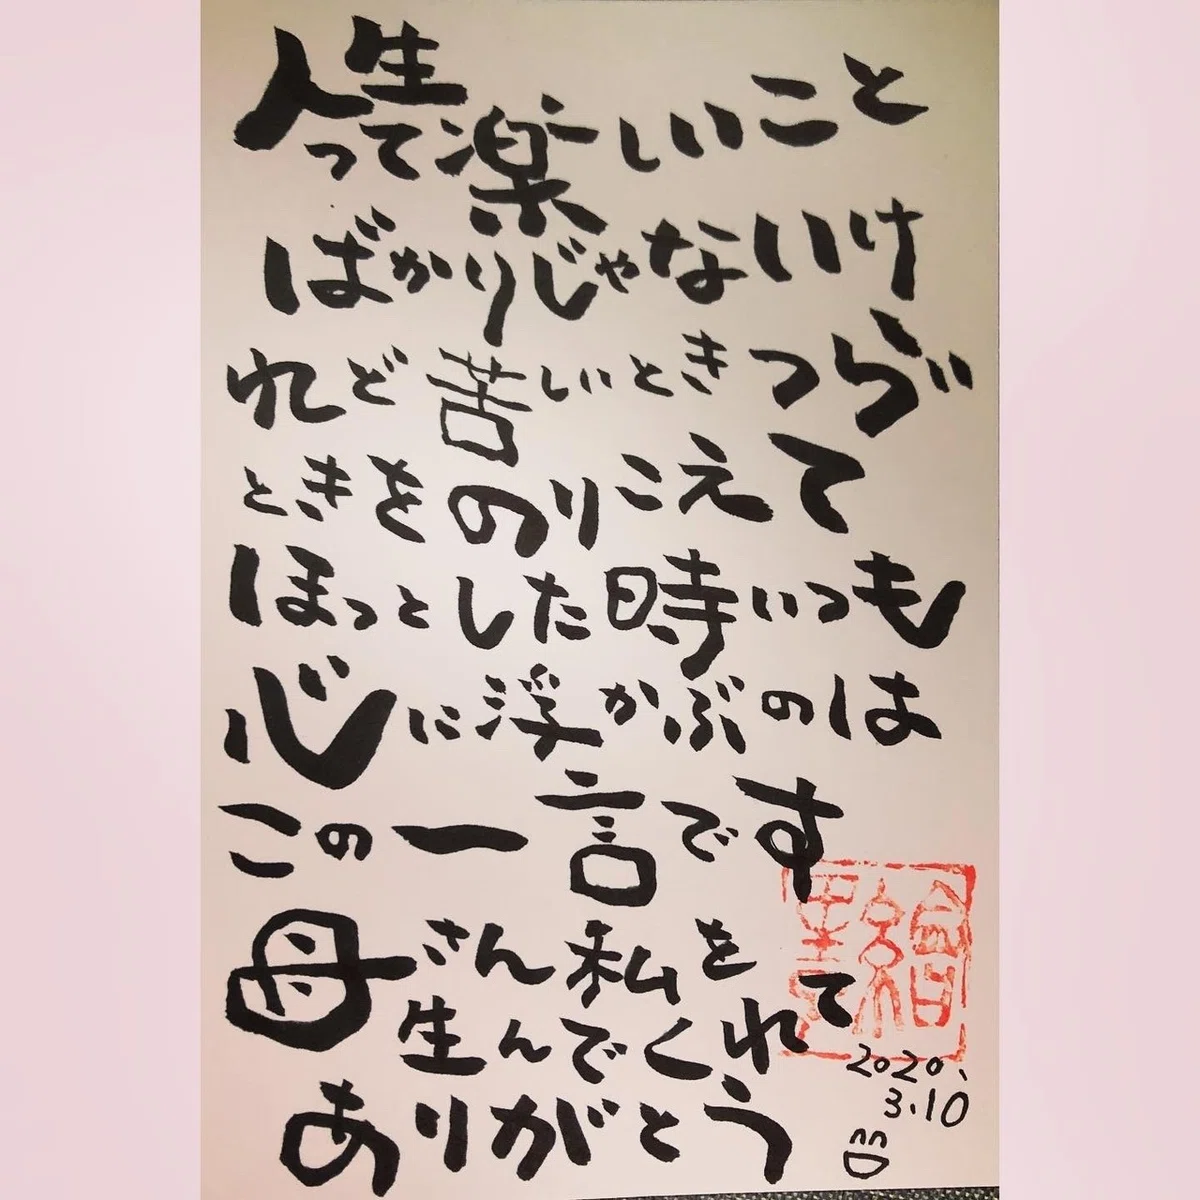 人生って楽しいこと
ばかりじゃないけ
れど苦しいときつらい
ときをのりこえて
ほっとした時いつも
心に浮かぶのは
この一言です
母さん私を
生んでくれて
ありがとう
2020.
3.10